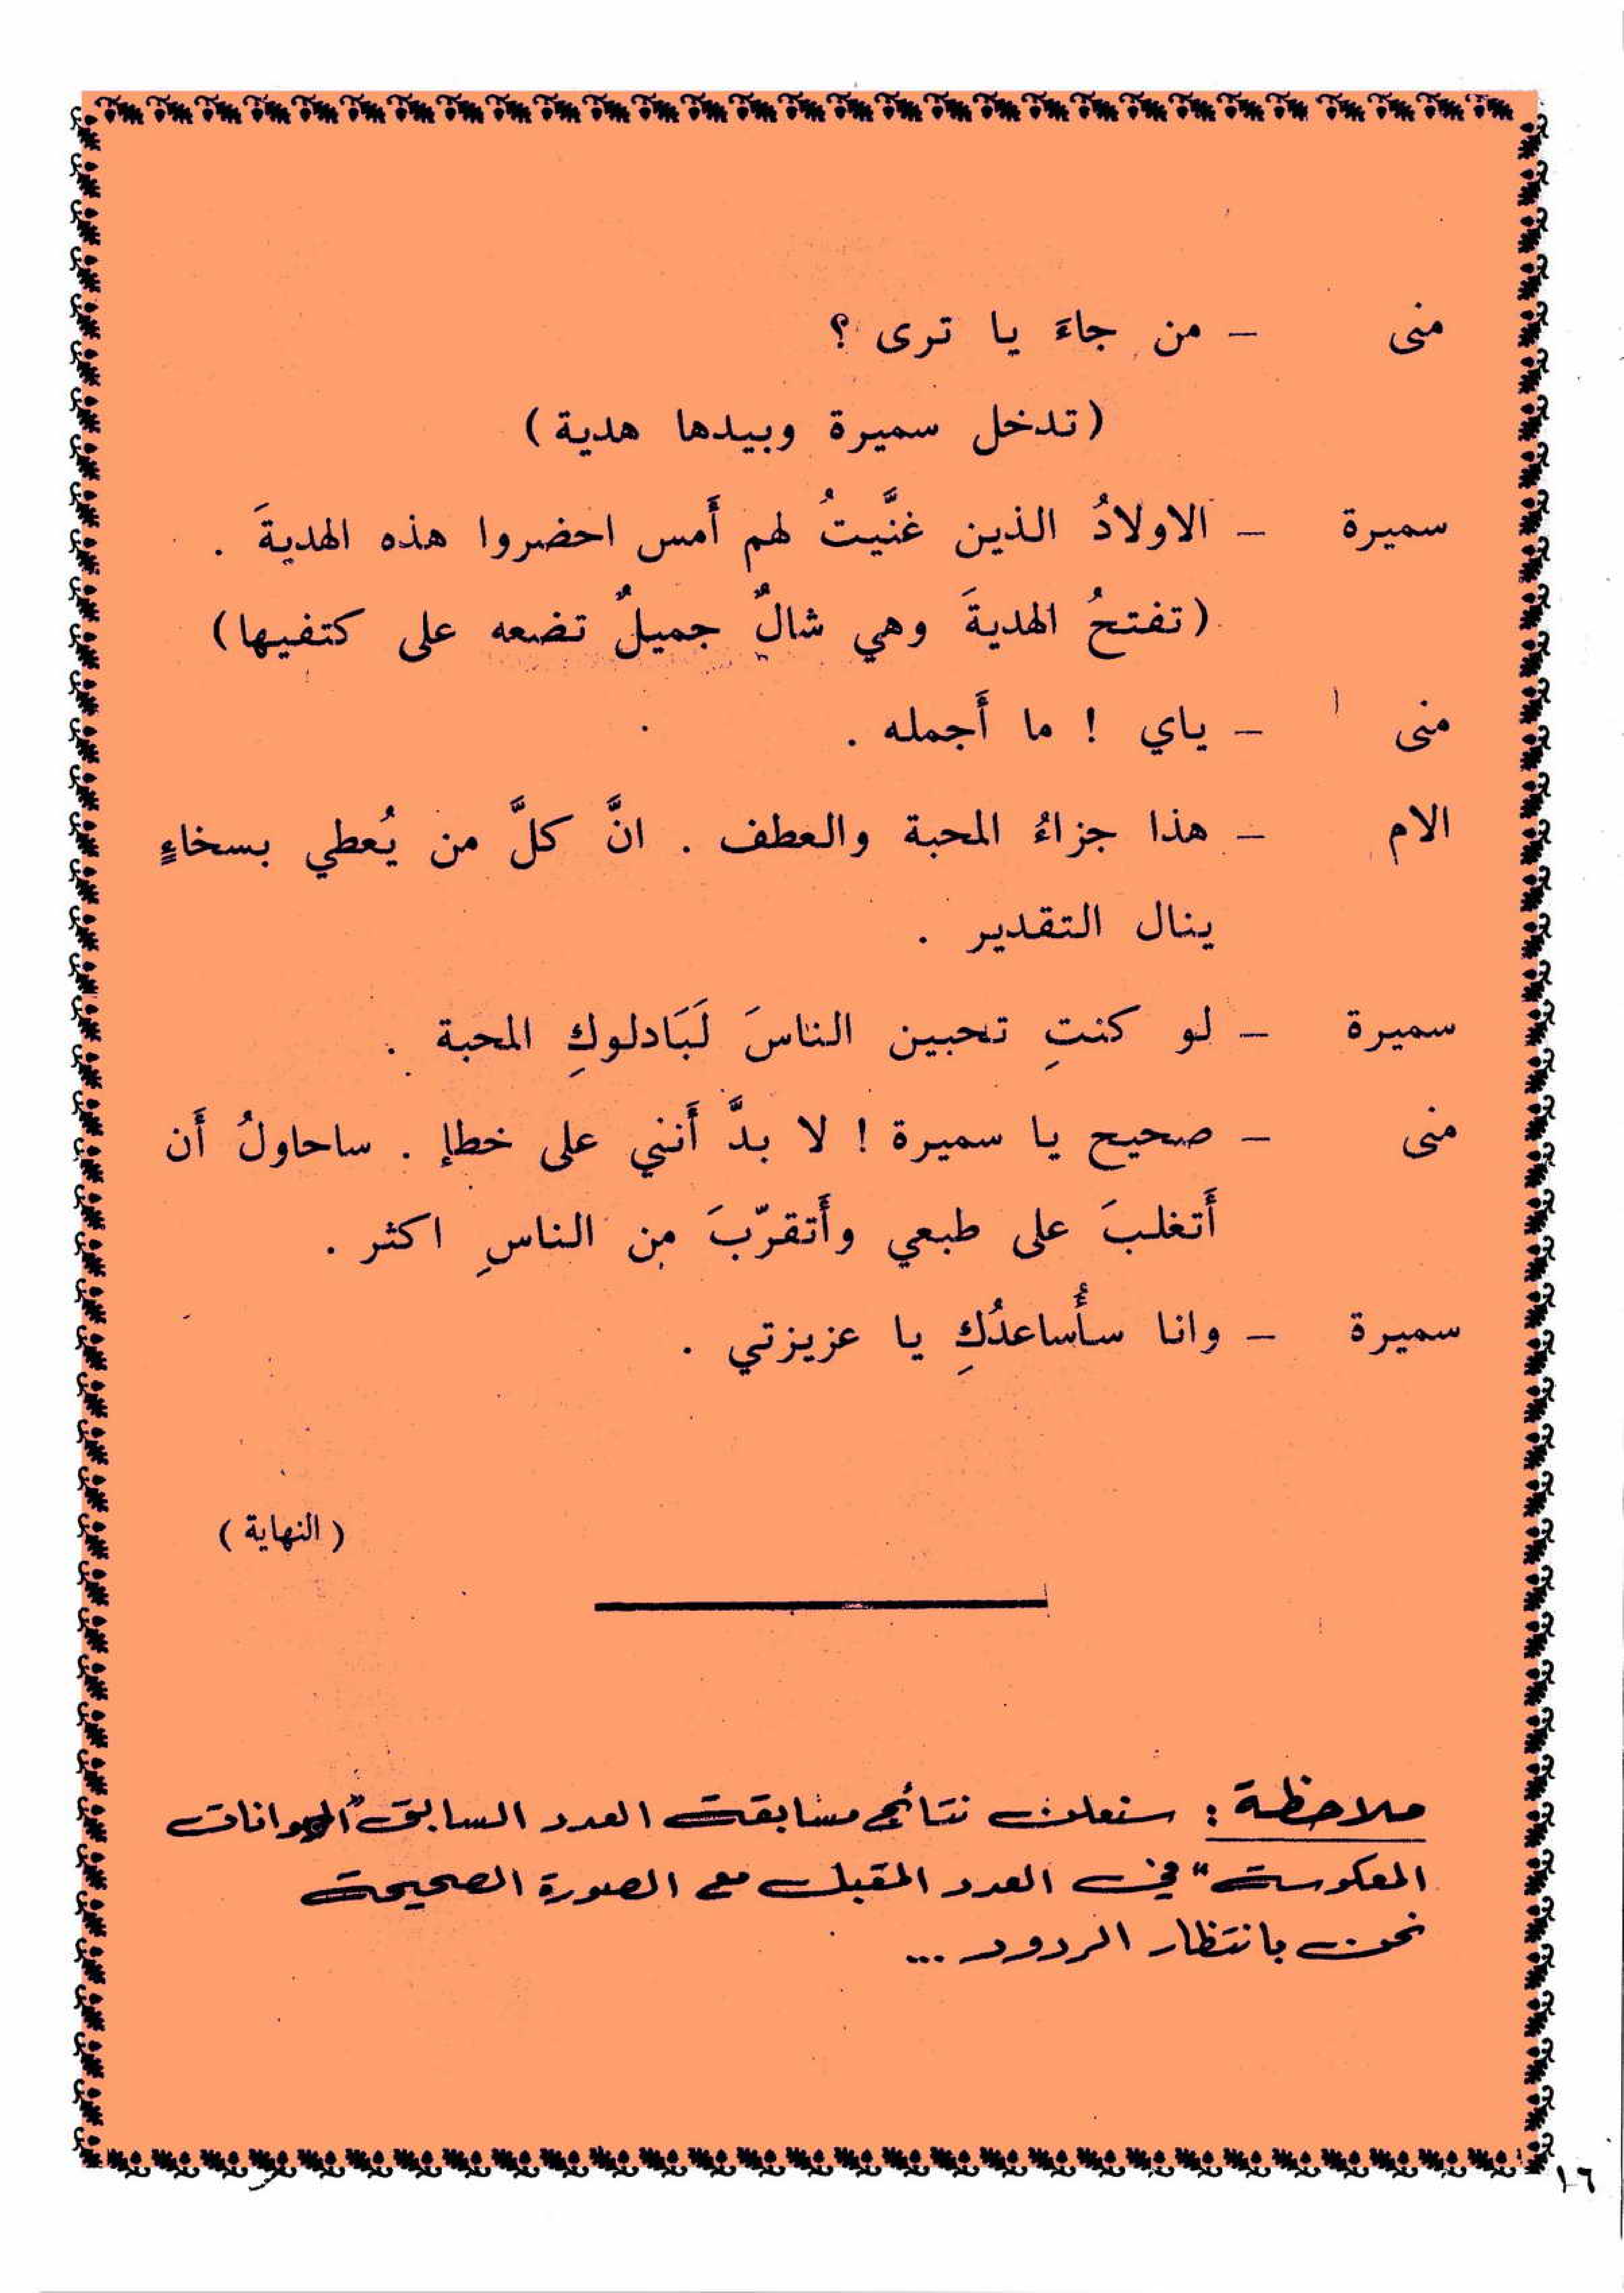 منى – من جاءَ يا ترى ؟
(تدخل سميرة وبيدها هدية)
سميرة – الاولادُ الذين غنَّيتُ لهم أَمس احضروا هذه الهديةَ .
(تفتحُ الهديةَ وهي شالٌ جميلٌ تضعه على كتفيها)
منى – ياي ! ما أَجمله .
الام – هذا جزاءُ المحبة والعطف . انَّ كلَّ من يُعطي بسخاءٍ
ينال التقدير .
سميرة – لو كنتِ تحبين الناسَ لَبَادلوكِ المحبة .
منى – صحيح يا سميرة ! لا بدَّ أَنني على خطإ . ساحاولُ أَن
أَتغلبَ على طبعي وأَتقرّبَ من الناسِ اكثر .
سميرة – وانا سأُساعدُكِ يا عزيزتي .
(النهاية)
ملاحظة : سنعلن نتائج مسابقة العدد السابق "الحيوانات
المعكوسة" في العدد المقبل مع الصورة الصحيحة
نحن بانتظار الردود ...
١٦